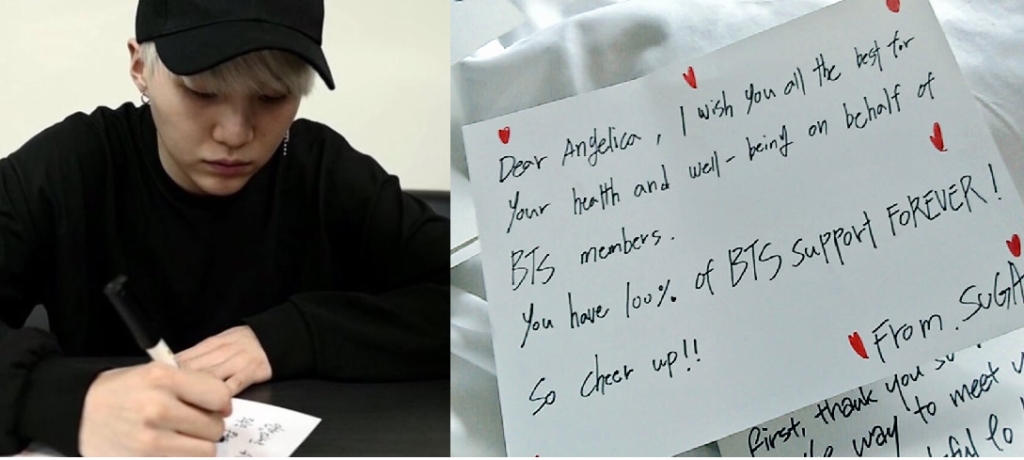 Dear Angelica, I wish you all the best for
your health and well-being on behalf of
BTS members.
You have 100% of BTS support FOREVER!
So cheer up!!
From. SUGA
First, thank you
way to meet